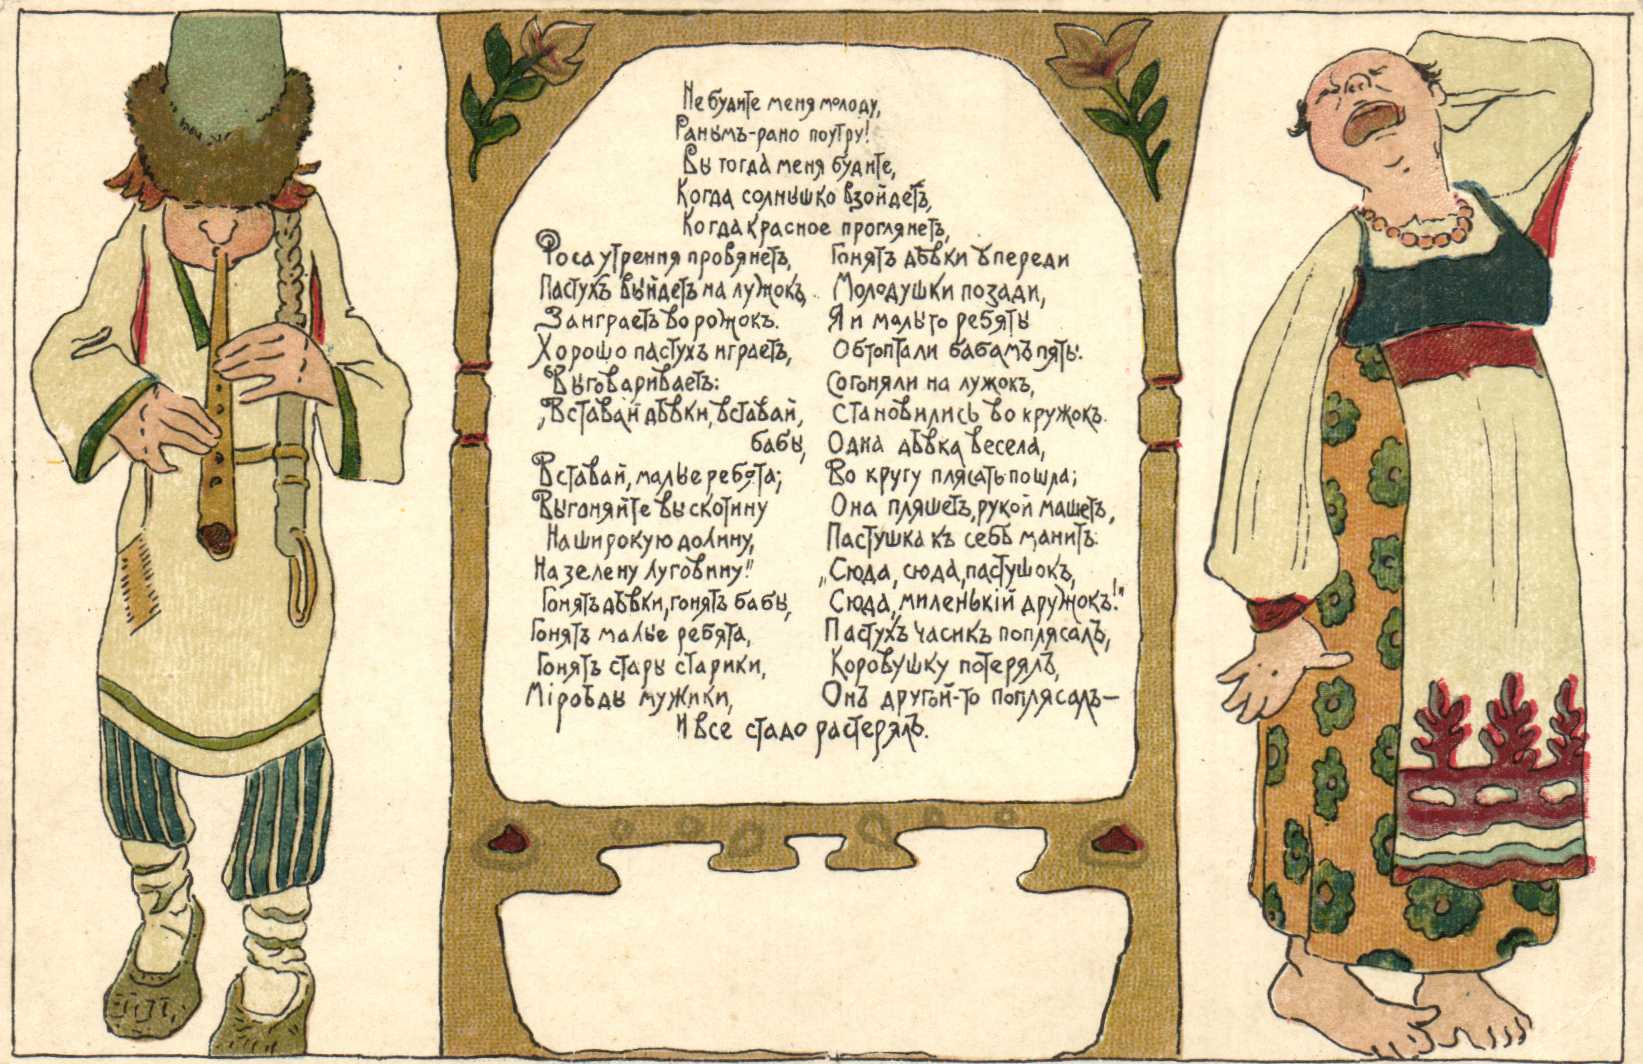 Не будите меня молоду,
Ранымъ-рано поутру!
Вы тогда меня будите,
Когда солнышко взойдетъ,
Когда красное проглянетъ,
Роса утрення провянетъ,
Пастухъ выйдетъ на лужокъ,
Заиграетъ во рожокъ.
Хорошо пастухъ играетъ,
Выговариваетъ:
„Вставай дѣвки, вставай,
бабы,
Вставай, малые ребята;
Выгоняйте вы скотину
На широкую долину,
На зелену луговину!"
Гонятъ дѣвки, гонятъ бабы,
Гонятъ малые ребята,
Гонятъ стары старики,
Міроѣды мужики,
Гонятъ дѣвки упереди
Молодушки позади,
А и малы то ребяты
Обтоптали бабамъ пяты.
Согоняли на лужокъ,
Становились во кружокъ.
Одна дѣвка весела,
Во кругу плясать пошла;
Она пляшетъ, рукой машетъ,
Пастушка къ себѣ манитъ:
„Сюда, сюда, пастушокъ,
Сюда, миленькій дружокъ!"
Пастухъ часикъ поплясалъ,
Коровушку потерялъ,
Онъ другой-то поплясалъ—
И все стадо растерялъ.